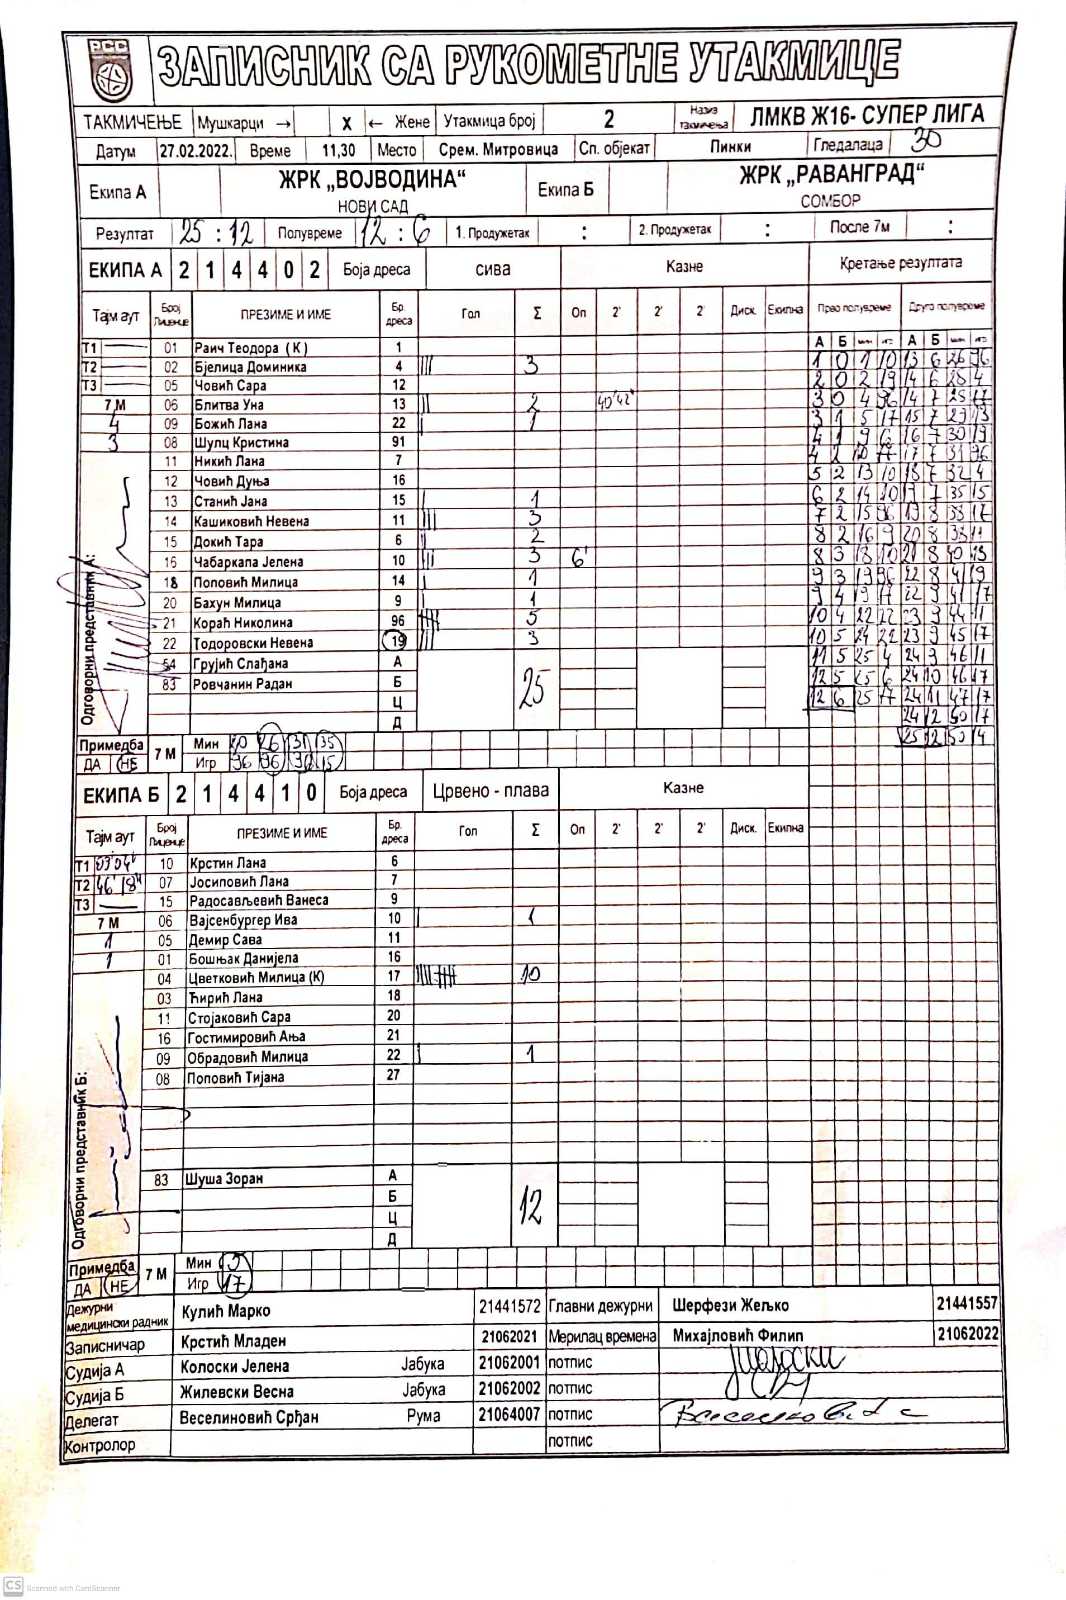 РСС
ЗАПИСНИК СА РУКОМЕТНЕ УТАКМИЦЕ
ТАКМИЧЕЊЕ Мушкарци → X ← Жене Утакмица број 2 Назив такмичења ЛМКВ Ж16- СУПЕР ЛИГА
Датум 27.02.2022. Време 11,30 Место Срем. Митровица Сп. објекат Пинки Гледалаца 30
Екипа А ЖРК „ВОЈВОДИНА“ Екипа Б ЖРК „РАВАНГРАД“
НОВИ САД СОМБОР
Резултат 25 : 12 Полувреме 12 : 6 1. Продужетак : 2. Продужетак : После 7м :
ЕКИПА А 2 1 4 4 0 2 Боја дреса сива Казне Кретање резултата
Тајм аут Број Лиценце ПРЕЗИМЕ И ИМЕ Бр. дреса Гол Σ Оп 2' 2' 2' Диск. Екипна Прво полувреме Друго полувреме
А Б мин иг. А Б мин иг.
Т1 01 Раич Теодора ( К ) 1
Т2 02 Бјелица Доминика 4 ||| 3 1 0 1 10 13 6 26 96
Т3 05 Човић Сара 12 2 0 2 19 14 6 28 4
7 М 06 Блитва Уна 13 || 2 40'42" 3 0 4 96 14 7 28 17
4 09 Божић Лана 22 | 1 3 1 5 17 15 7 29 13
3 08 Шулц Кристина 91 4 1 9 6 16 7 30 19
11 Никић Лана 7 4 2 10 17 17 7 31 96
12 Човић Дуња 16 5 2 13 10 18 7 32 4
13 Станић Јана 15 | 1 6 2 14 10 19 7 35 15
14 Кашиковић Невена 11 ||| 3 7 2 15 96 19 8 38 17
15 Докић Тара 6 || 2 8 2 16 9 20 8 38 11
16 Чабаркапа Јелена 10 ||| 3 6' 8 3 18 10 21 8 40 13
18 Поповић Милица 14 | 1 9 3 19 96 22 8 41 19
20 Бахун Милица 9 | 1 9 4 19 17 22 9 41 17
21 Кораћ Николина 96 5 10 4 22 22 23 9 44 11
22 Тодоровски Невена 19 ||| 3 10 5 24 22 23 9 45 17
64 Грујић Слађана А 11 5 25 4 24 9 46 11
83 Ровчанин Радан Б 25 12 5 25 6 24 10 46 17
Ц 12 6 25 17 24 11 47 17
Д 24 12 50 17
25 12 50 4
Одговорни представник А:
Примедба ДА НЕ 7 М Мин 20 26 31 35
Игр 96 96 96 15
ЕКИПА Б 2 1 4 4 1 0 Боја дреса Црвено - плава Казне
Тајм аут Број Лиценце ПРЕЗИМЕ И ИМЕ Бр. дреса Гол Σ Оп 2' 2' 2' Диск. Екипна
Т1 10 Крстин Лана 6
Т2 46'18" 07 Јосиповић Лана 7
Т3 15 Радосављевић Ванеса 9
7 М 06 Вајсенбургер Ива 10 | 1
1 05 Демир Сава 11
1 01 Бошњак Данијела 16
04 Цветковић Милица (К) 17 10
03 Ћирић Лана 18
11 Стојаковић Сара 20
16 Гостимировић Ања 21
09 Обрадовић Милица 22 | 1
08 Поповић Тијана 27
83 Шуша Зоран А
Б 12
Ц
Д
Одговорни представник Б:
Примедба ДА НЕ 7 М Мин 5
Игр 17
Дежурни медицински радник Кулић Марко 21441572 Главни дежурни Шерфези Жељко 21441557
Записничар Крстић Младен 21062021 Мерилац времена Михајловић Филип 21062022
Судија А Колоски Јелена Јабука 21062001 потпис
Судија Б Жилевски Весна Јабука 21062002 потпис
Делегат Веселиновић Срђан Рума 21064007 потпис
Контролор потпис
CS Scanned with CamScanner